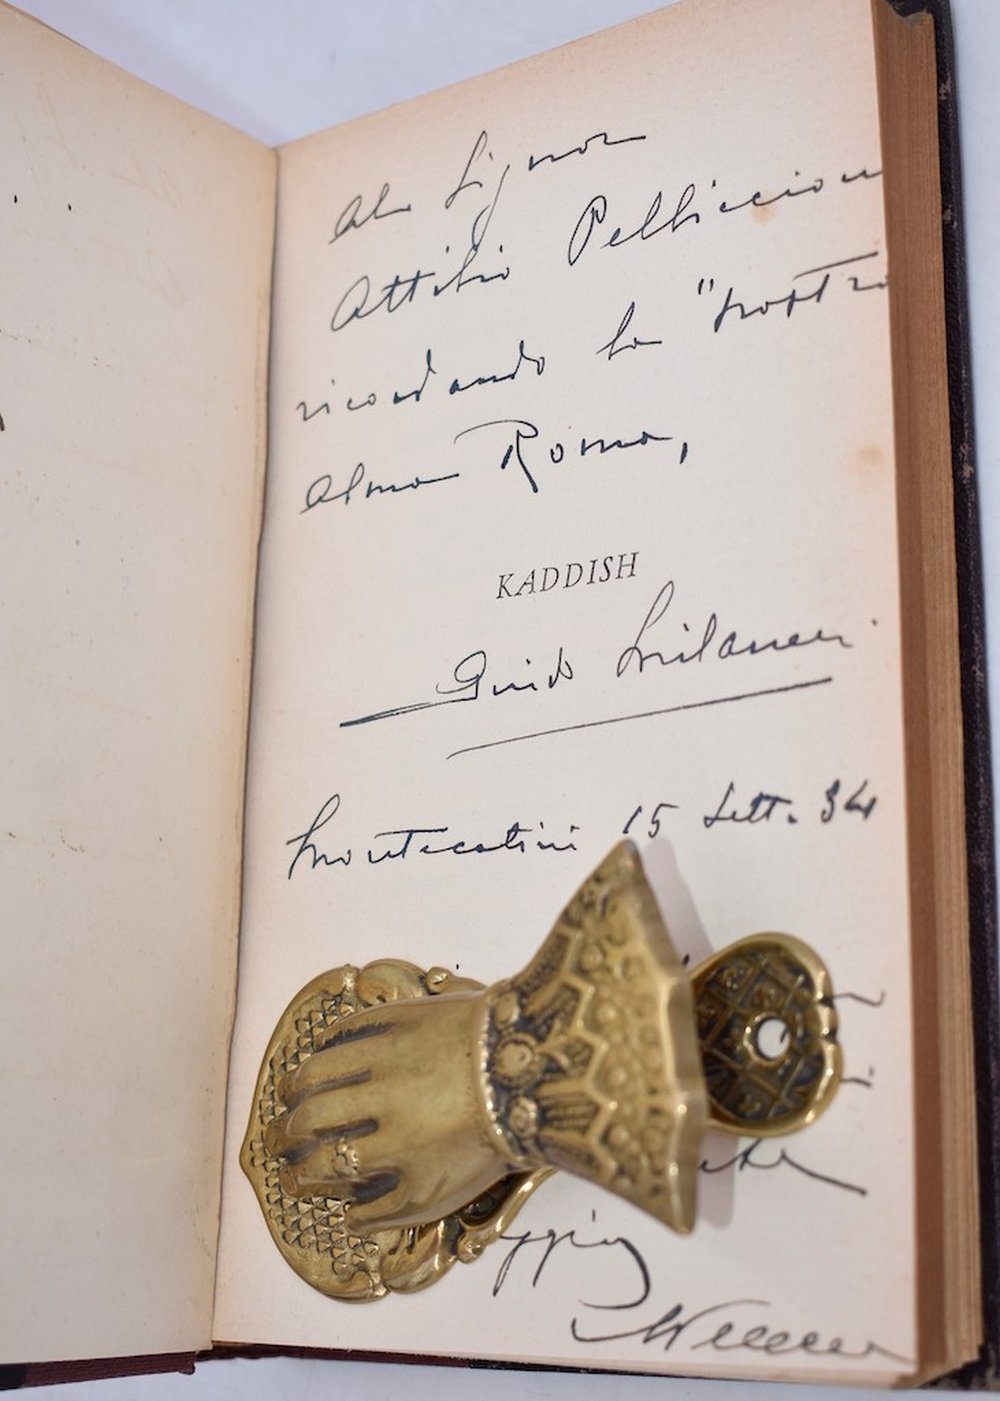 Al Signor
Attilio Pelliccioni
ricordando la "nostra
Alma Roma,
KADDISH
Guido Milanesi
Montecatini 15 Sett. 34